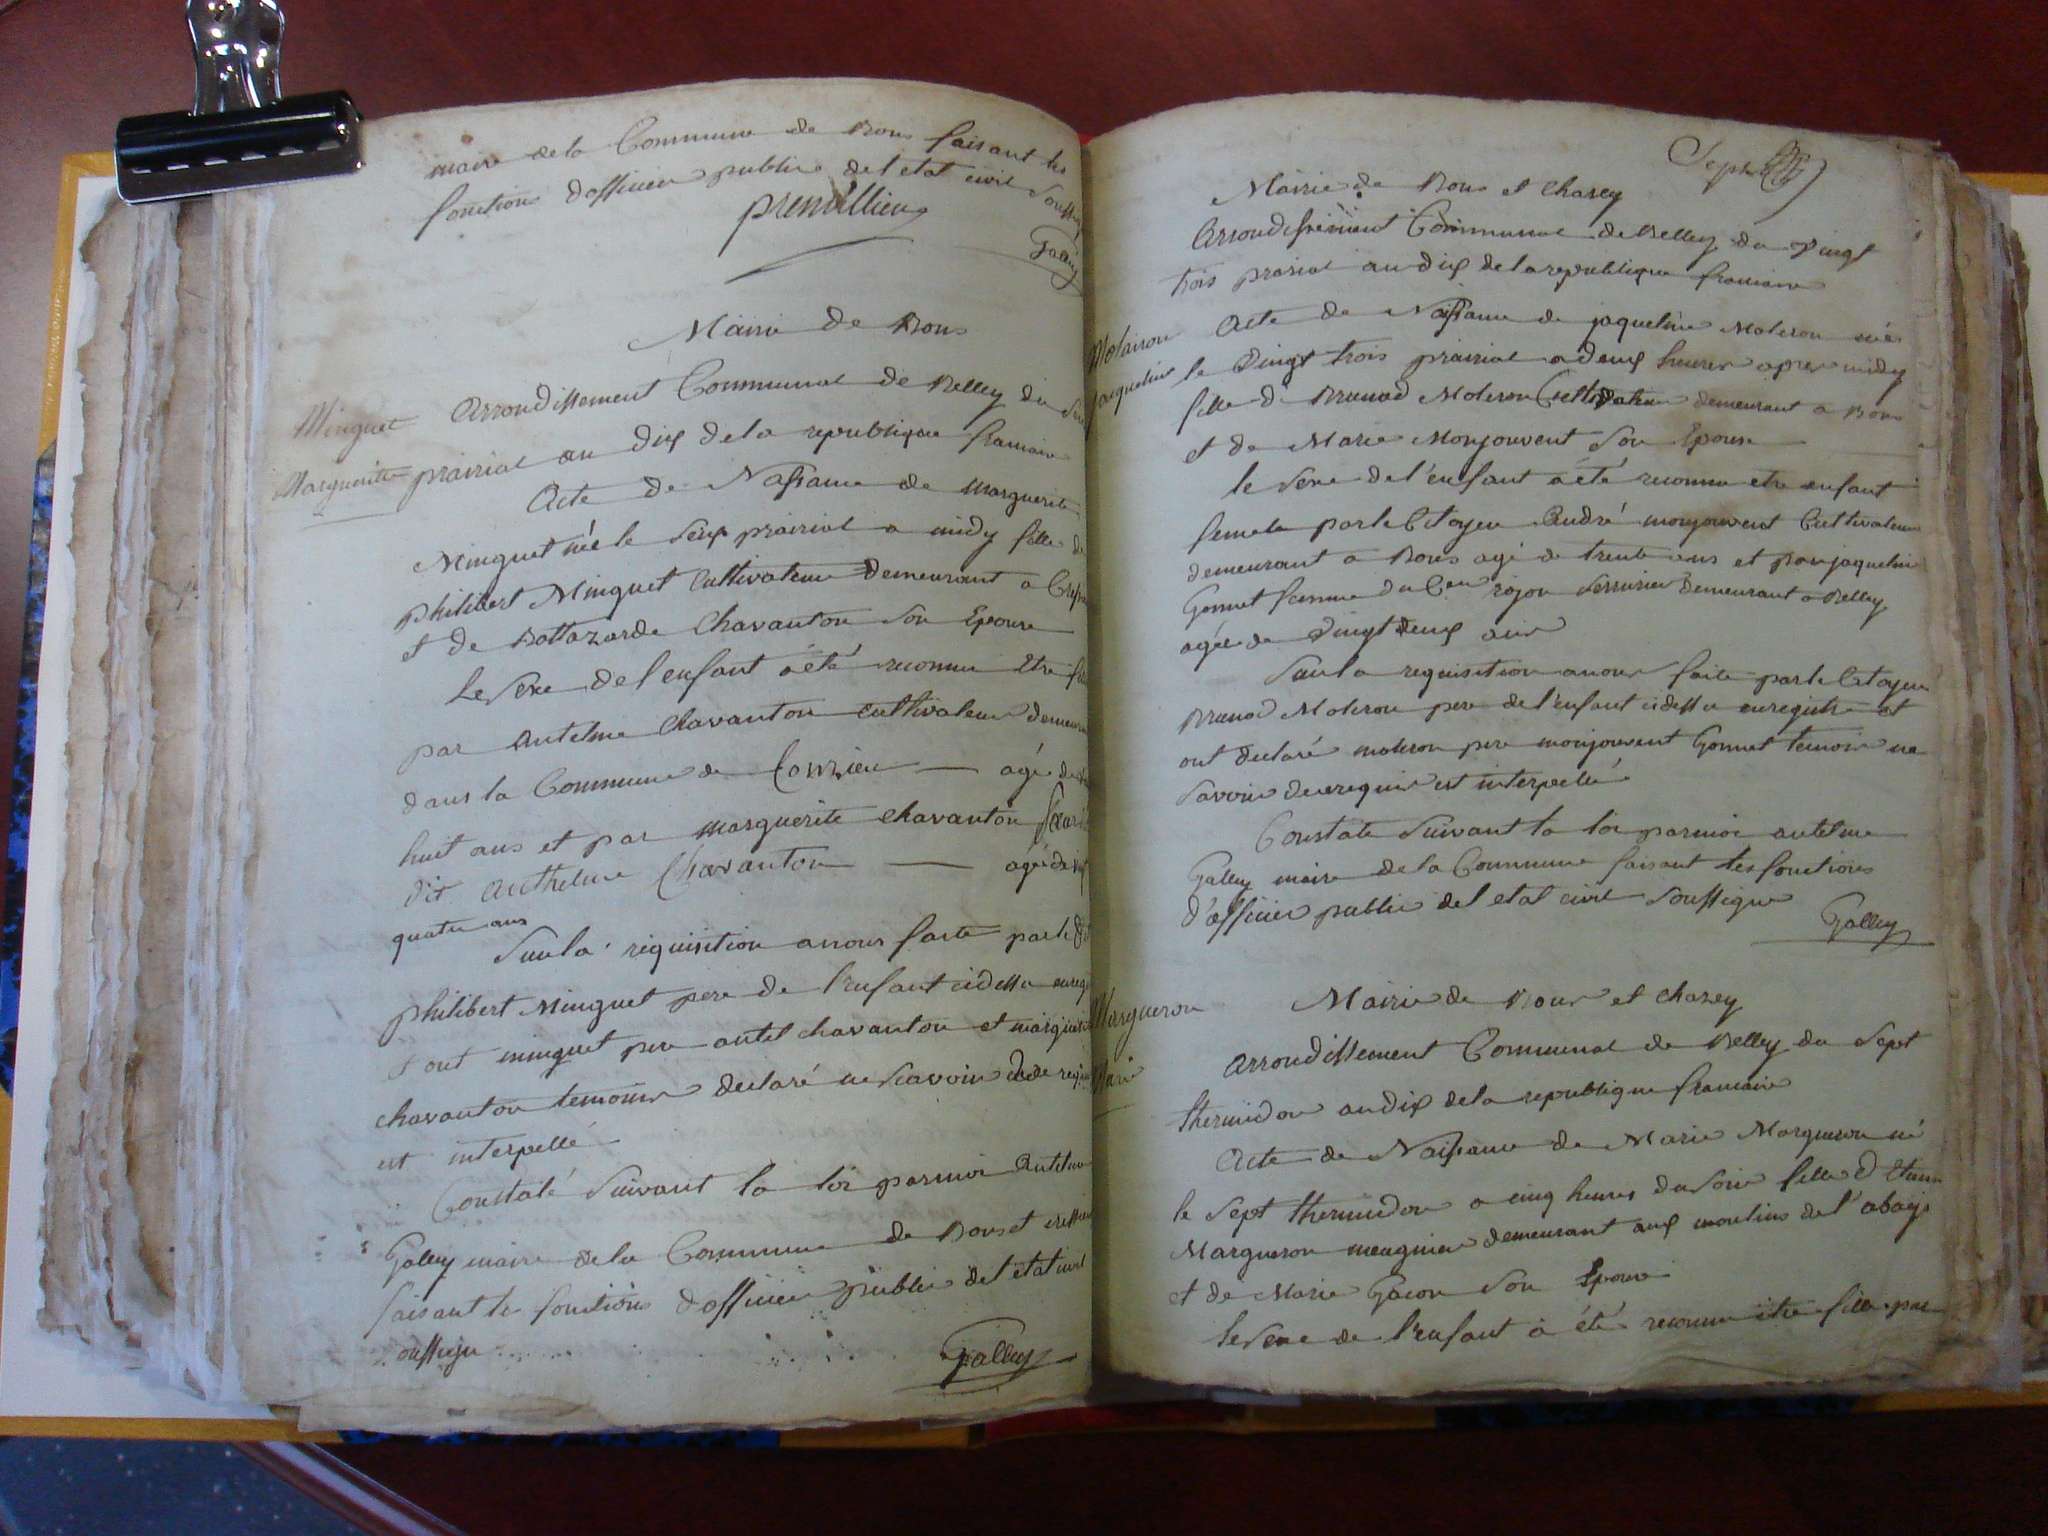 maire de la Commune de Bons faisant les
fonctions d'officier public de l'etat civil soussig
premillieu
Galley
Mairie de Bons
Minguet
Margueritte
Arrondissement Communal de Belley du
prairial an dix de la republique francaise
Acte de Naissance de Marguerite
Minguet née le seix prairial a midy fille de
philibert Minguet Cultivateur demeurant a
et de Battazarde Chavanton son Epouse
Le sexe de l'enfant a été reconnu Etre
par antelme Chavanton cultivateur
dans la Commune de Conzieu — agé de
huit ans et par marguerite chavanton sœur
dit anthelme Chavanton — agée de
quatre ans
Sur la requisition a nous faite par le dit
philibert Minguet pere de l'enfant cidessu
et ont minguet pere antel chavanton et
chavanton temoins declaré ne scavoir de ce
est interpellé
Constaté suivant la loi par moi Antelme
Galley maire de la Commune de Bons et
faisant les fonctions d'officier public de l'etat civil
soussigne
Galley
Sept
Mairie de Bons et Chazey
Arrondissement Communal de Belley du vingt
trois prarial an dix de la republique francaise
Molairon
Jacqueline
Acte de Naissance de jaqueline Moleron née
le vingt trois prairial a deux heures apres midy
fille de Brunod Moleron Cultivateur demeurant a Bons
et de Marie Monjouvent son Epouse
le sexe de l'enfant a été reconnu etre enfant
femele par le Citoyen André monjouvent Cultivateur
demeurant a Bons agé de trente ans et par jaqueline
Gonnet femme du Cen rojon serrurier demeurant a Belley
agée de vingt deux ans
Sur la requisition a nous faite par le Citoyen
Brunod Moleron pere de l'enfant cidessu enregistré et
ont declaré moleron pere monjouvent Gonnet temoin ne
savoir de ce requis est interpellé
Constaté suivant la loi par moi antelme
Galley maire de la Commune faisant les fonctions
d'officier public de l'etat civil soussigne
Galley
Margueron
Marie
Mairie de Bons et Chazey
Arrondissement Communal de Belley du sept
thermidor an dix de la republique francaise
Acte de Naissance de Marie Margueron né
le sept thermidor a cinq heures du soir fille d'Etienne
Margueron meugnier demeurant aux moulins de l'abaye
et de Marie Gacon son Epouse
le sexe de l'enfant a été reconnu etre fille par